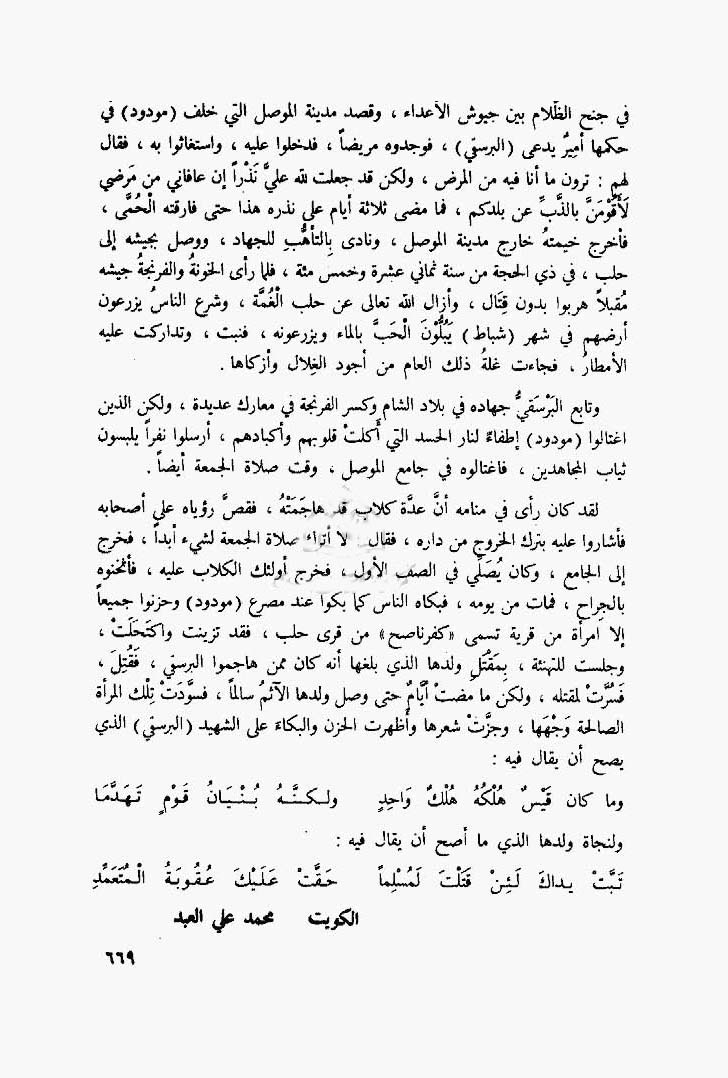 في جنح الظَّلام بين جيوش الأعداء ، وقصد مدينة الموصل التي خلف (مودود) في
حكمها أميرٌ يدعى (البرسقي) ، فوجدوه مريضاً ، فدخلوا عليه ، واستغاثوا به ، فقال
لهم : ترون ما أنا فيه من المرض ، ولكن قد جعلت لله عليَّ نَذْراً إن عافاني من مَرضي
لَأَقُوْمَنَّ بالذَّبِّ عن بلدكم ، فما مضى ثلاثة أيام على نذره هذا حتى فارقته الْحُمَّى ،
فأخرج خيمتهُ خارج مدينة الموصل ، ونادى بِالتأهُّبِ للجهاد ، ووصل بجيشه إلى
حلب ، في ذي الحجة من سنة ثماني عشرة وخمس مئة ، فلما رأى الخونةُ والفرنجةُ جيشه
مُقبلاً هربوا بدون قِتَال ، وأزال الله تعالى عن حلب الْغُمَّة ، وشرع الناسُ يزرعون
أرضهم في شهر (شباط) يَبُلُّوْنَ الْحَبَّ بالماء ويزرعونه ، فنبت ، وتداركت عليه
الأمطارُ ، فجاءت غلةُ ذلك العام من أجود الغِلال وأزكاها .
وتابع البَرْسَقيُّ جهاده في بلاد الشام وكسر الفرنجة في معارك عديدة ، ولكن الذين
اغتالوا (مودود) إطفاءً لنار الحسد التي أَكلتْ قلوبهم وأكبادهم ، أرسلوا نفراً يلبسون
ثياب المجاهدين ، فاغتالوه في جامع الموصل ، وقت صلاة الجمعة أيضاً .
لقد كان رأى في منامه أنَّ عدَّة كلاب قد هاجَمَتْهُ ، فقصَّ رؤياه على أصحابه
فأشاروا عليه بترك الخروج من داره ، فقال لا أترك صلاة الجمعة لشيء أبداً ، فخرج
إلى الجامع ، وكان يُصَلِّي في الصف الأول ، فخرج أولئك الكلاب عليه ، فأثخنوه
بالجِراح ، فمات من يومه ، فبكاه الناس كما بكوا عند مصرع (مودود) وحزنوا جميعاً
إلا امرأة من قرية تسمى «كفرناصح» من قرى حلب ، فقد تزينت واكتَحَلَتْ ،
وجلست للتهنئة ، بِمَقْتَلِ ولدها الذي بلغها أنه كان ممن هاجموا البرسقي ، فَقُتِلَ ،
فَسُرَّتْ لمقتله ، ولكن ما مضتْ أَيَّامٌ حتى وصل ولدها الآثمُ سالماً ، فسوَّدَتْ تِلْك المرأة
الصالحة وَجْهَها ، وجزَّتْ شعرها وأظهرت الحزن والبكاءَ على الشهيد (البرسقي) الذي
يصح أن يقال فيه :
وما كان قَيْسٌ هُلْكُهُ هُلْكٌ وَاحِدٍ ولـكـنَّـهُ بُـنْـيَـانُ قَـوْمٍ تَـهَـدَّمَـا
ولنجاة ولدها الذي ما أصح أن يقال فيه :
تَبَّتْ يـداكَ لَـئِـنْ قَتَلْتَ لَمُسْلِماً حَقَّتْ عَلَيْكَ عُـقُـوبَـةُ الْـمُتَعَمِّدِ
الكويت محمد علي العبد
٦٦٩